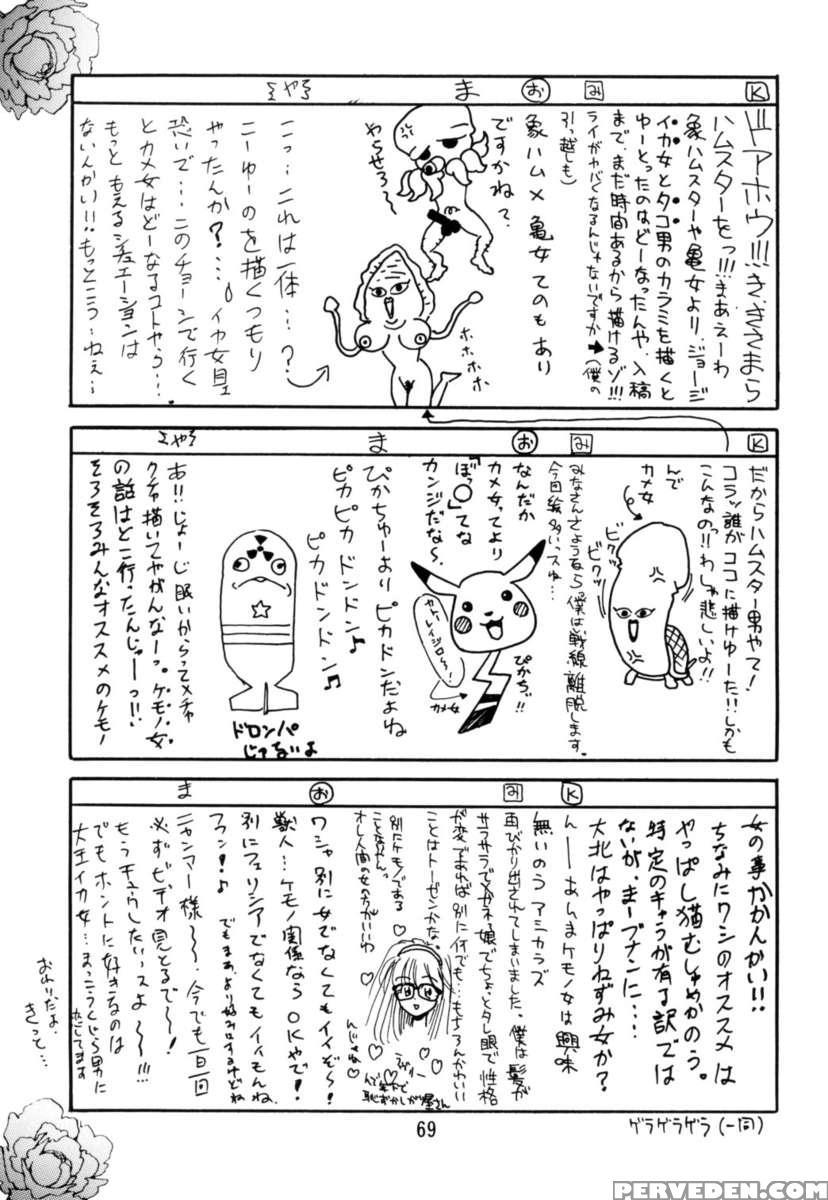 K
み
お
ま
そや
ドアホウ!!!き、きさまら
ハムスターをっ!!!まあえーわ
象ハムスターや亀女より、ジョージ
イカ女とタコ男のカラミを描くと
ゆーとったのはどーなったんや、入稿
まで、まだ時間あるから描けるゾ!!!
ライがヤバくなるんじゃないですか➡(僕の
引っ越しも)
象ハムメ亀女てのもあり
ですかね?
やらせろ〜
ホホホホ
こっ…これは一体…?
こーゆーのを描くつもり
やったんか?…イカ女
恐いで…このチョーシで行く
とカメ女はどーなるコトやら…
もっともえるシチュエーションは
ないんかい!!もっとこう…ねぇ…
K
み
お
ま
そや
だからハムスター男やて!
コラッ誰がココに描けゆーた!!しかも
こんなのっ!!わしゃ悲しいよ!!
んで
カメ女
ビクッ
ビクッ
みなさんさようなら。僕は戦線離脱します。
今回絵多いっスね…
なんだか
カメ女ってより
「ぼっ〇」てな
カンジだな〜、
ぴかぢゅ!!
カメ女
ぴかちゅーよりピカドンだよね
ピカピカドンドン♪
ピカドンドン♫
ドロンパ
じゃないよ
あ!!じょーじ眠いからってメチャ
クチャ描いてやがんなーっ。ケモノ女
の話はどこ行ったんじゃーっ!!
そろそろみんなオススメのケモノ
K
み
お
ま
女の事かかんかい!!
ちなみにワシのオススメは
やっぱし猫むしゅめかのう。
特定のキャラが有る訳では
ないが、まーブナンに…
大北はやっぱりねずみ女か?
んーーあしまケモノ女は興味
無いのうアシカラズ
再びかり出されてしまいました。僕は髪が
サラサラでメガネ娘でちょっとタレ眼で性格
が変であれば別に何でも…もちろんかわいい
ことはトーゼンかな。
別にケモノである
ことなやんっ
オレ人間の女の方がいいわ
んじゃね
恥ずかしがり屋さん
ワシャ別に女でなくてもイイぞ〜!
獣人…ケモノ関係ならOKやで!
別にフェリシアでなくてもイイもんね、
フフン!♪
でもまあ、より好みはするけどね
ニャンマー様〜〜、今でも一日一回
必ずビデオ見とるで〜!
もうチュウしたいっスよ〜〜!!!
でもホントに好きなのは
大王イカ女…まっこうくじら男に
恋してます
おわりだよ、
きっと…
ゲラゲラゲラ(一同)
69
PERVEDEN.COM